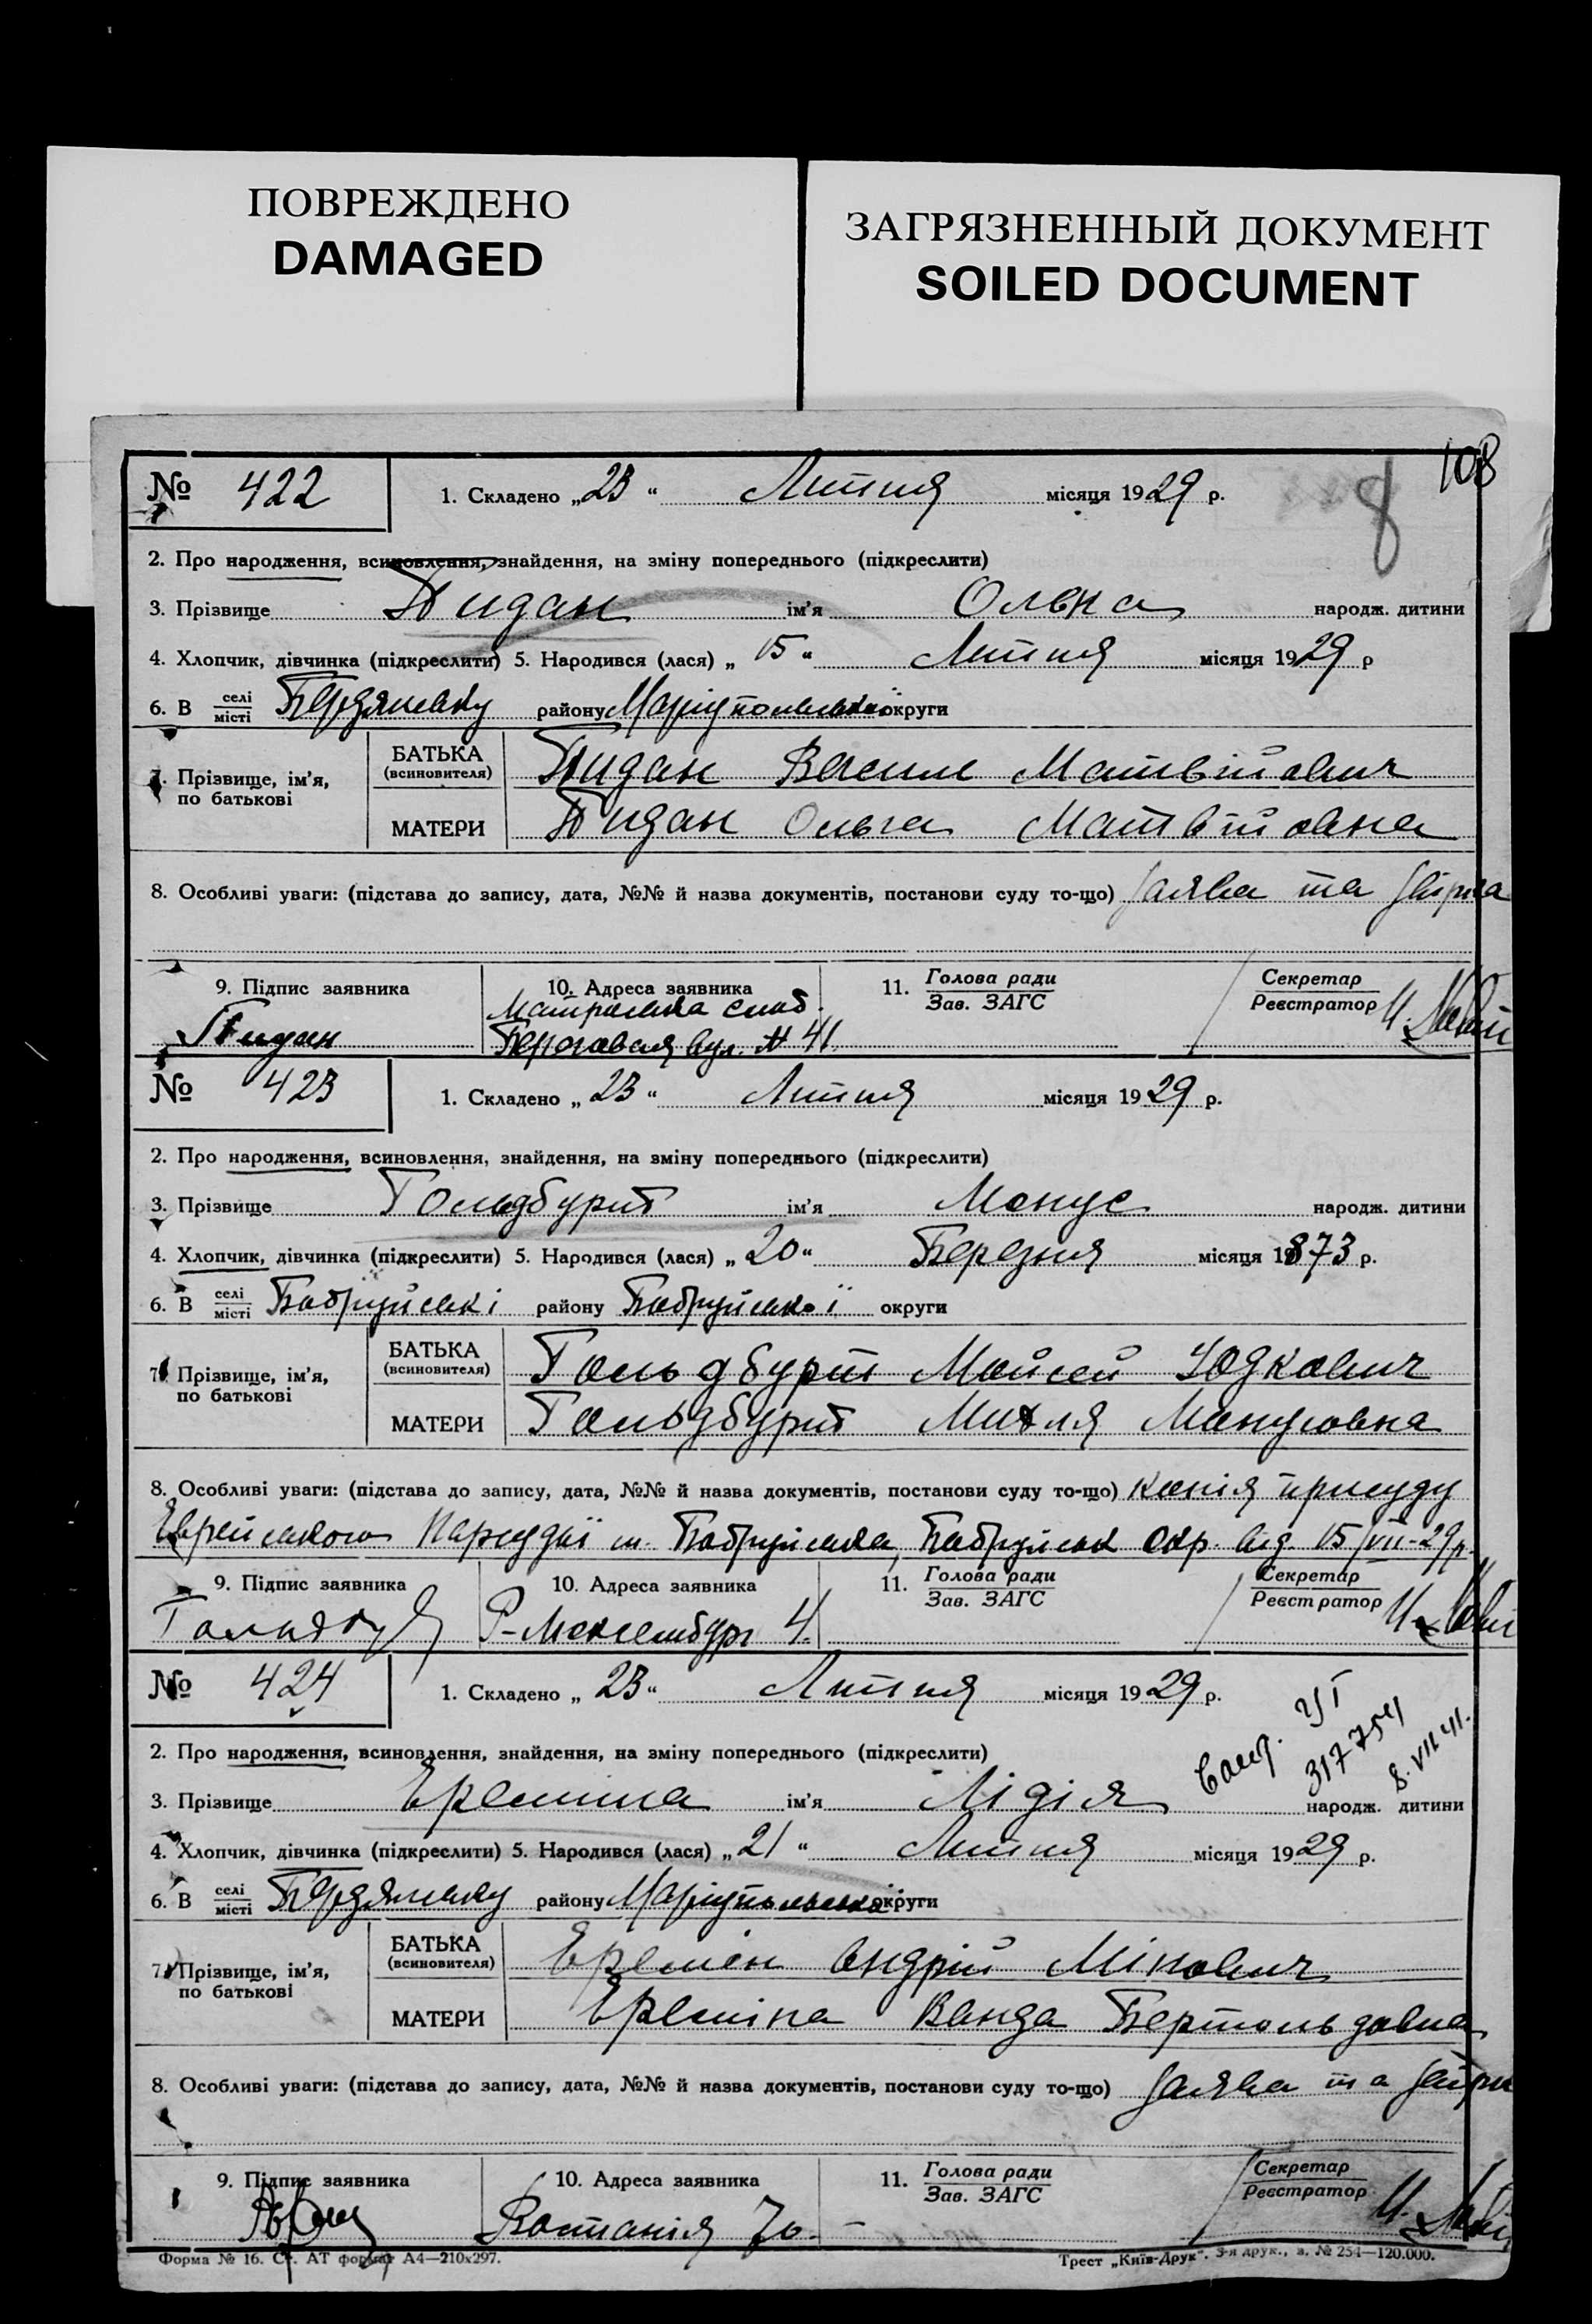 ПОВРЕЖДЕНО
DAMAGED
ЗАГРЯЗНЕННЫЙ ДОКУМЕНТ
SOILED DOCUMENT
108
8
№ 422
1. Складено „23“ Липня місяця 1929 р.
2. Про народження, всиновлення, знайдення, на зміну попереднього (підкреслити)
3. Прізвище Пидан ім'я Ольна народж. дитини
4. Хлопчик, дівчинка (підкреслити) 5. Народився (лася) „15“ Липня місяця 1929 р
6. В селі місті Бердянську району Маріупольської округи
7. Прізвище, ім'я, по батькові
БАТЬКА (всиновителя) Пидан Василь Матвійович
МАТЕРИ Пидан Ольга Матвійовна
8. Особливі уваги: (підстава до запису, дата, №№ й назва документів, постанови суду то-що) Заява та
9. Підпис заявника
Пидан
10. Адреса заявника
Матроська слоб.
Береговая вул. № 41.
11. Голова ради
Зав. ЗАГС
Секретар
Реєстратор
№ 423
1. Складено „23“ Липня місяця 1929 р.
2. Про народження, всиновлення, знайдення, на зміну попереднього (підкреслити)
3. Прізвище Гольдбурт ім'я Монус народж. дитини
4. Хлопчик, дівчинка (підкреслити) 5. Народився (лася) „20“ Березня місяця 1873 р.
6. В селі місті Бобруйські району Бобруйської округи
7. Прізвище, ім'я, по батькові
БАТЬКА (всиновителя) Гольдбурт Мойсей Юдкович
МАТЕРИ Гольдбурт Михля Манусовна
8. Особливі уваги: (підстава до запису, дата, №№ й назва документів, постанови суду то-що) Копія присуду
Еврейського Нарсудії м. Бобруйська, Бобруйськ окр. від. 15/VII-29р.
9. Підпис заявника
10. Адреса заявника
Р-Люксембург 4.
11. Голова ради
Зав. ЗАГС
Секретар
Реєстратор
№ 424
1. Складено „23“ Липня місяця 1929 р.
2. Про народження, всиновлення, знайдення, на зміну попереднього (підкреслити)
317754
8.VII 41.
3. Прізвище Еремина ім'я Лідія народж. дитини
4. Хлопчик, дівчинка (підкреслити) 5. Народився (лася) „21“ Липня місяця 1929 р.
6. В селі місті Бердянську району Маріупольської округи
7. Прізвище, ім'я, по батькові
БАТЬКА (всиновителя) Еремін Андрій Мінович
МАТЕРИ Ереміна Ванда Бертольдовна
8. Особливі уваги: (підстава до запису, дата, №№ й назва документів, постанови суду то-що) Заява та
9. Підпис заявника
10. Адреса заявника
Востанія 70. -
11. Голова ради
Зав. ЗАГС
Секретар
Реєстратор
Форма № 16. Ст. АТ формат А4—210х297.
Трест „Київ-Друк“. 3-я друк., з. № 254—120.000.